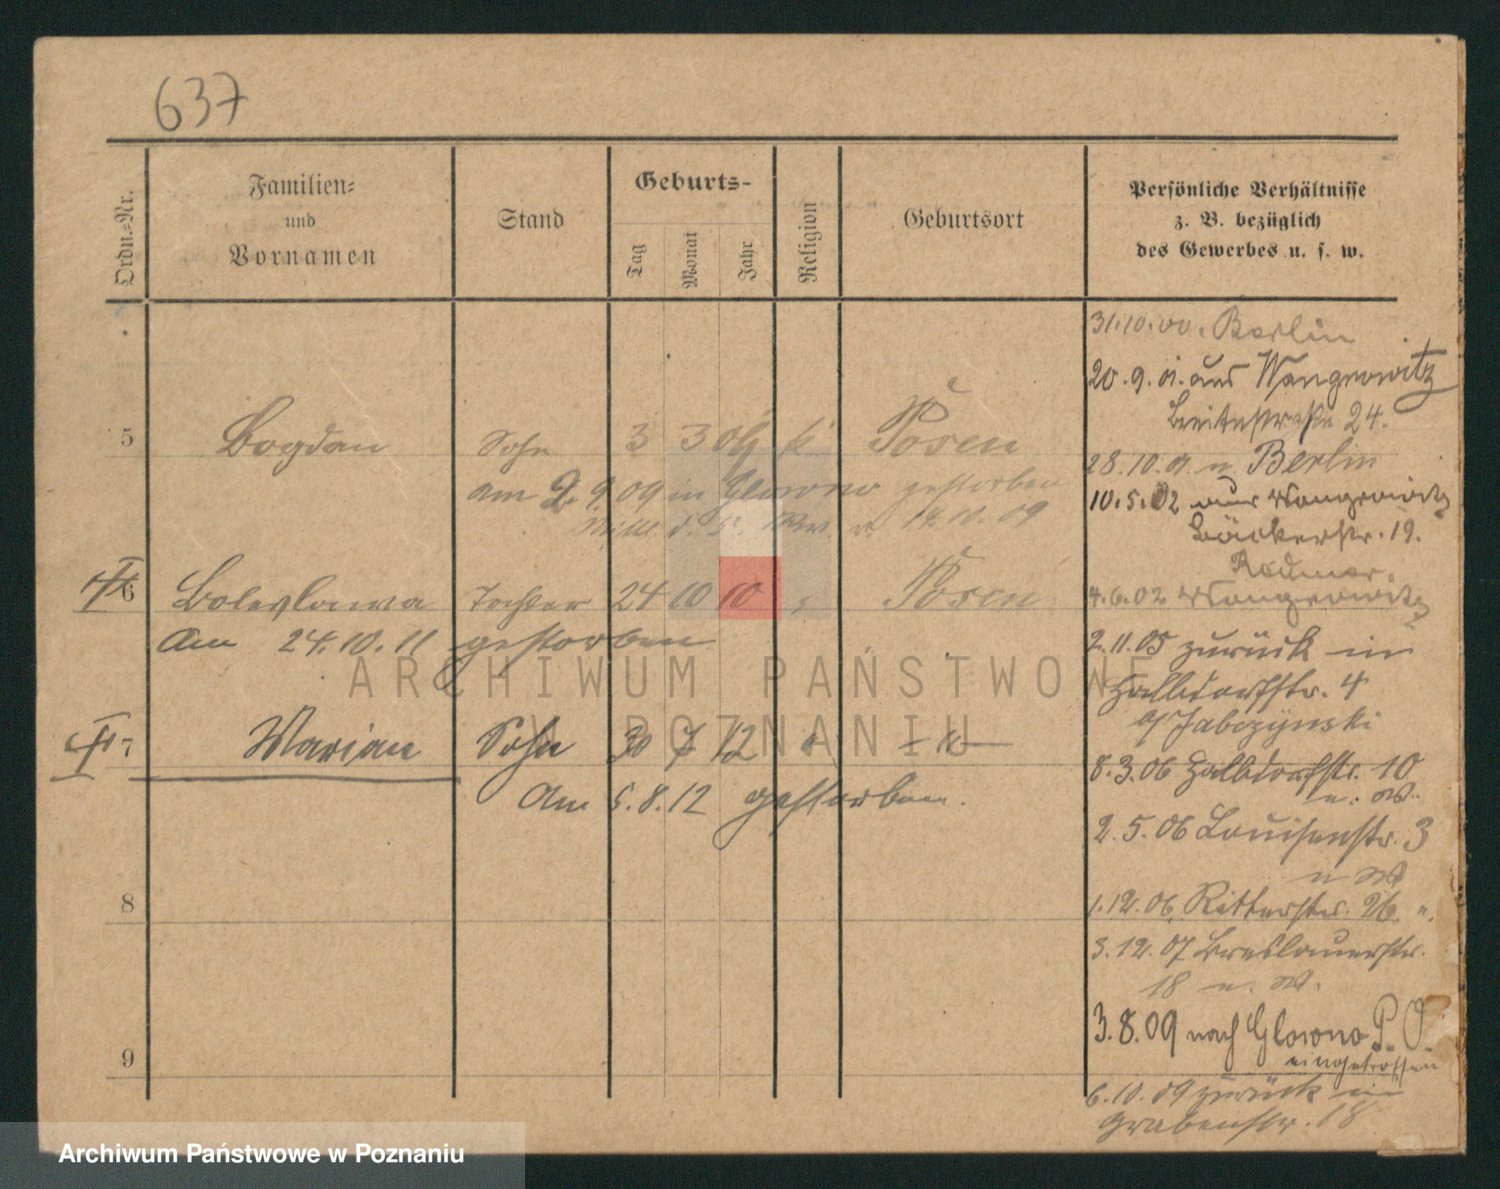 637
Ordn.-Nr.
Familien-
und
Vornamen
Stand
Geburts-
Tag
Monat
Jahr
Religion
Geburtsort
Persönliche Verhältnisse
z. B. bezüglich
des Gewerbes u. s. w.
5 Bogdan Sohn 3 3 09 k Posen
am 2. 9. 09 in Glowno gestorben
14. 10. 09
6 Boleslawa Tochter 24 10 10 Posen
Am 24. 10. 11 gestorben
7 Marian Sohn 30 7 12 " — " —
Am 5. 8. 12 gestorben.
8
9
31. 10. 00. Berlin
20. 9. 01. aus Wongrowitz
Breitestraße 24.
28. 10. 01 n Berlin
10. 5. 02 aus Wongrowitz
Bäckerstr. 19.
4. 6. 02 Wongrowitz
2. 11. 05 zurück in
Halbdorfstr. 4
b/ Jabczynski
8. 3. 06 Halbdorfstr. 10
u. W.
2. 5. 06 Louisenstr. 3
u W
1. 12. 06. Ritterstr. 26 ".
3. 12. 07 Breslauerstr.
18 u. W.
3. 8. 09 nach Glowno P. O.
eingetroffen
6. 10. 09 zurück in
Grabenstr. 18
ARCHIWUM PAŃSTWOWE
W POZNANIU
Archiwum Państwowe w Poznaniu